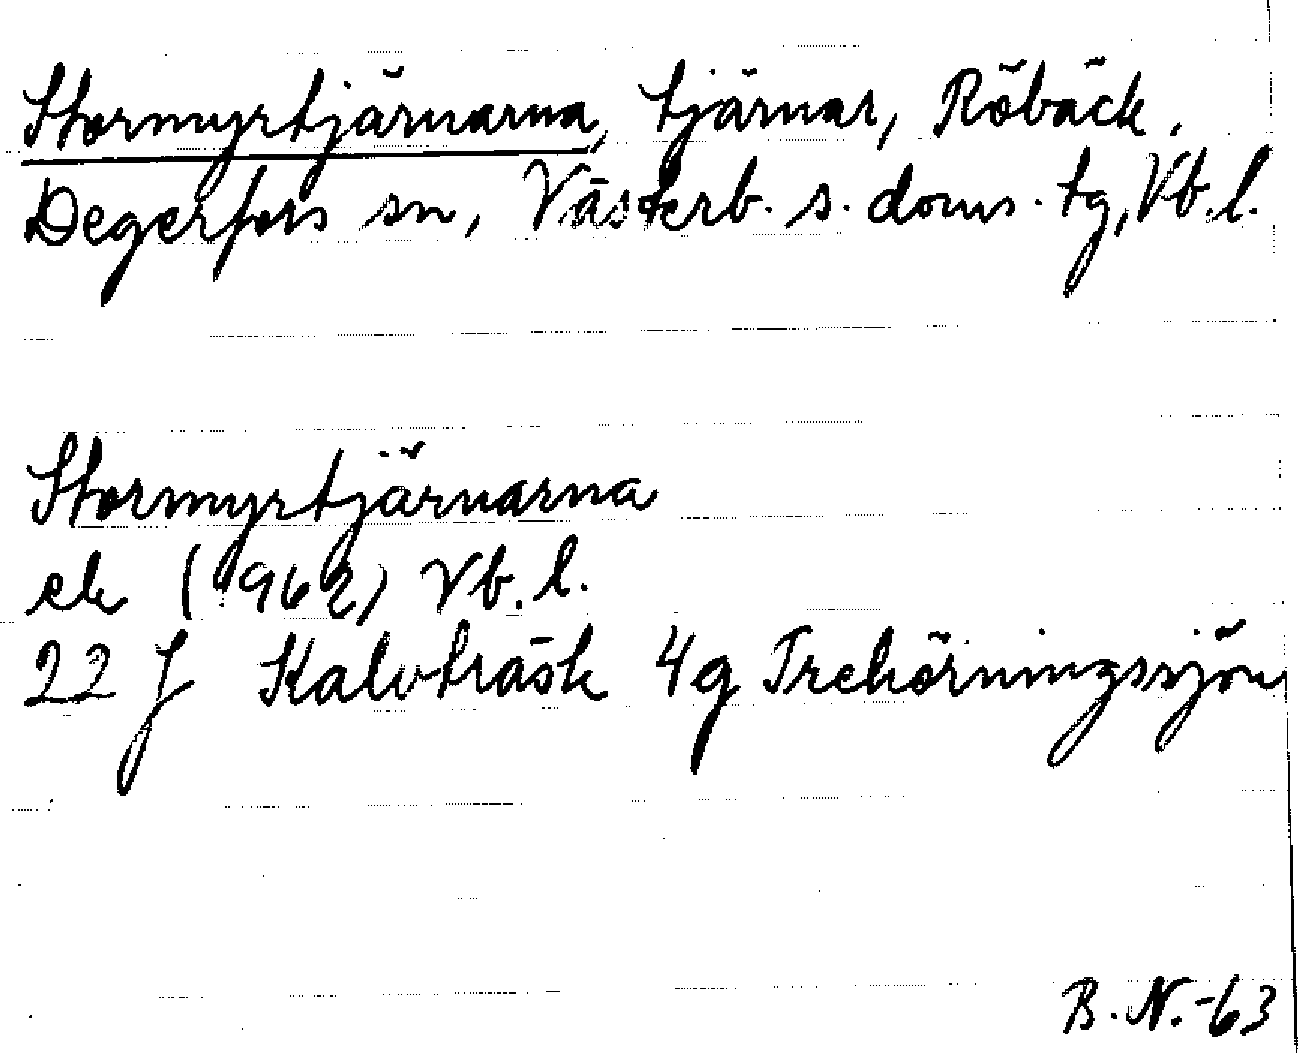 Stormyrtjärnarna, tjärnar, Röbäck,
Degerfors sn, Västerb. s. doms. tg, Vb. l.
Stormyrtjärnarna
ek (1962) Vb. l.
22 J Kalvträsk 4g Trehörningssjön
B. N. -63